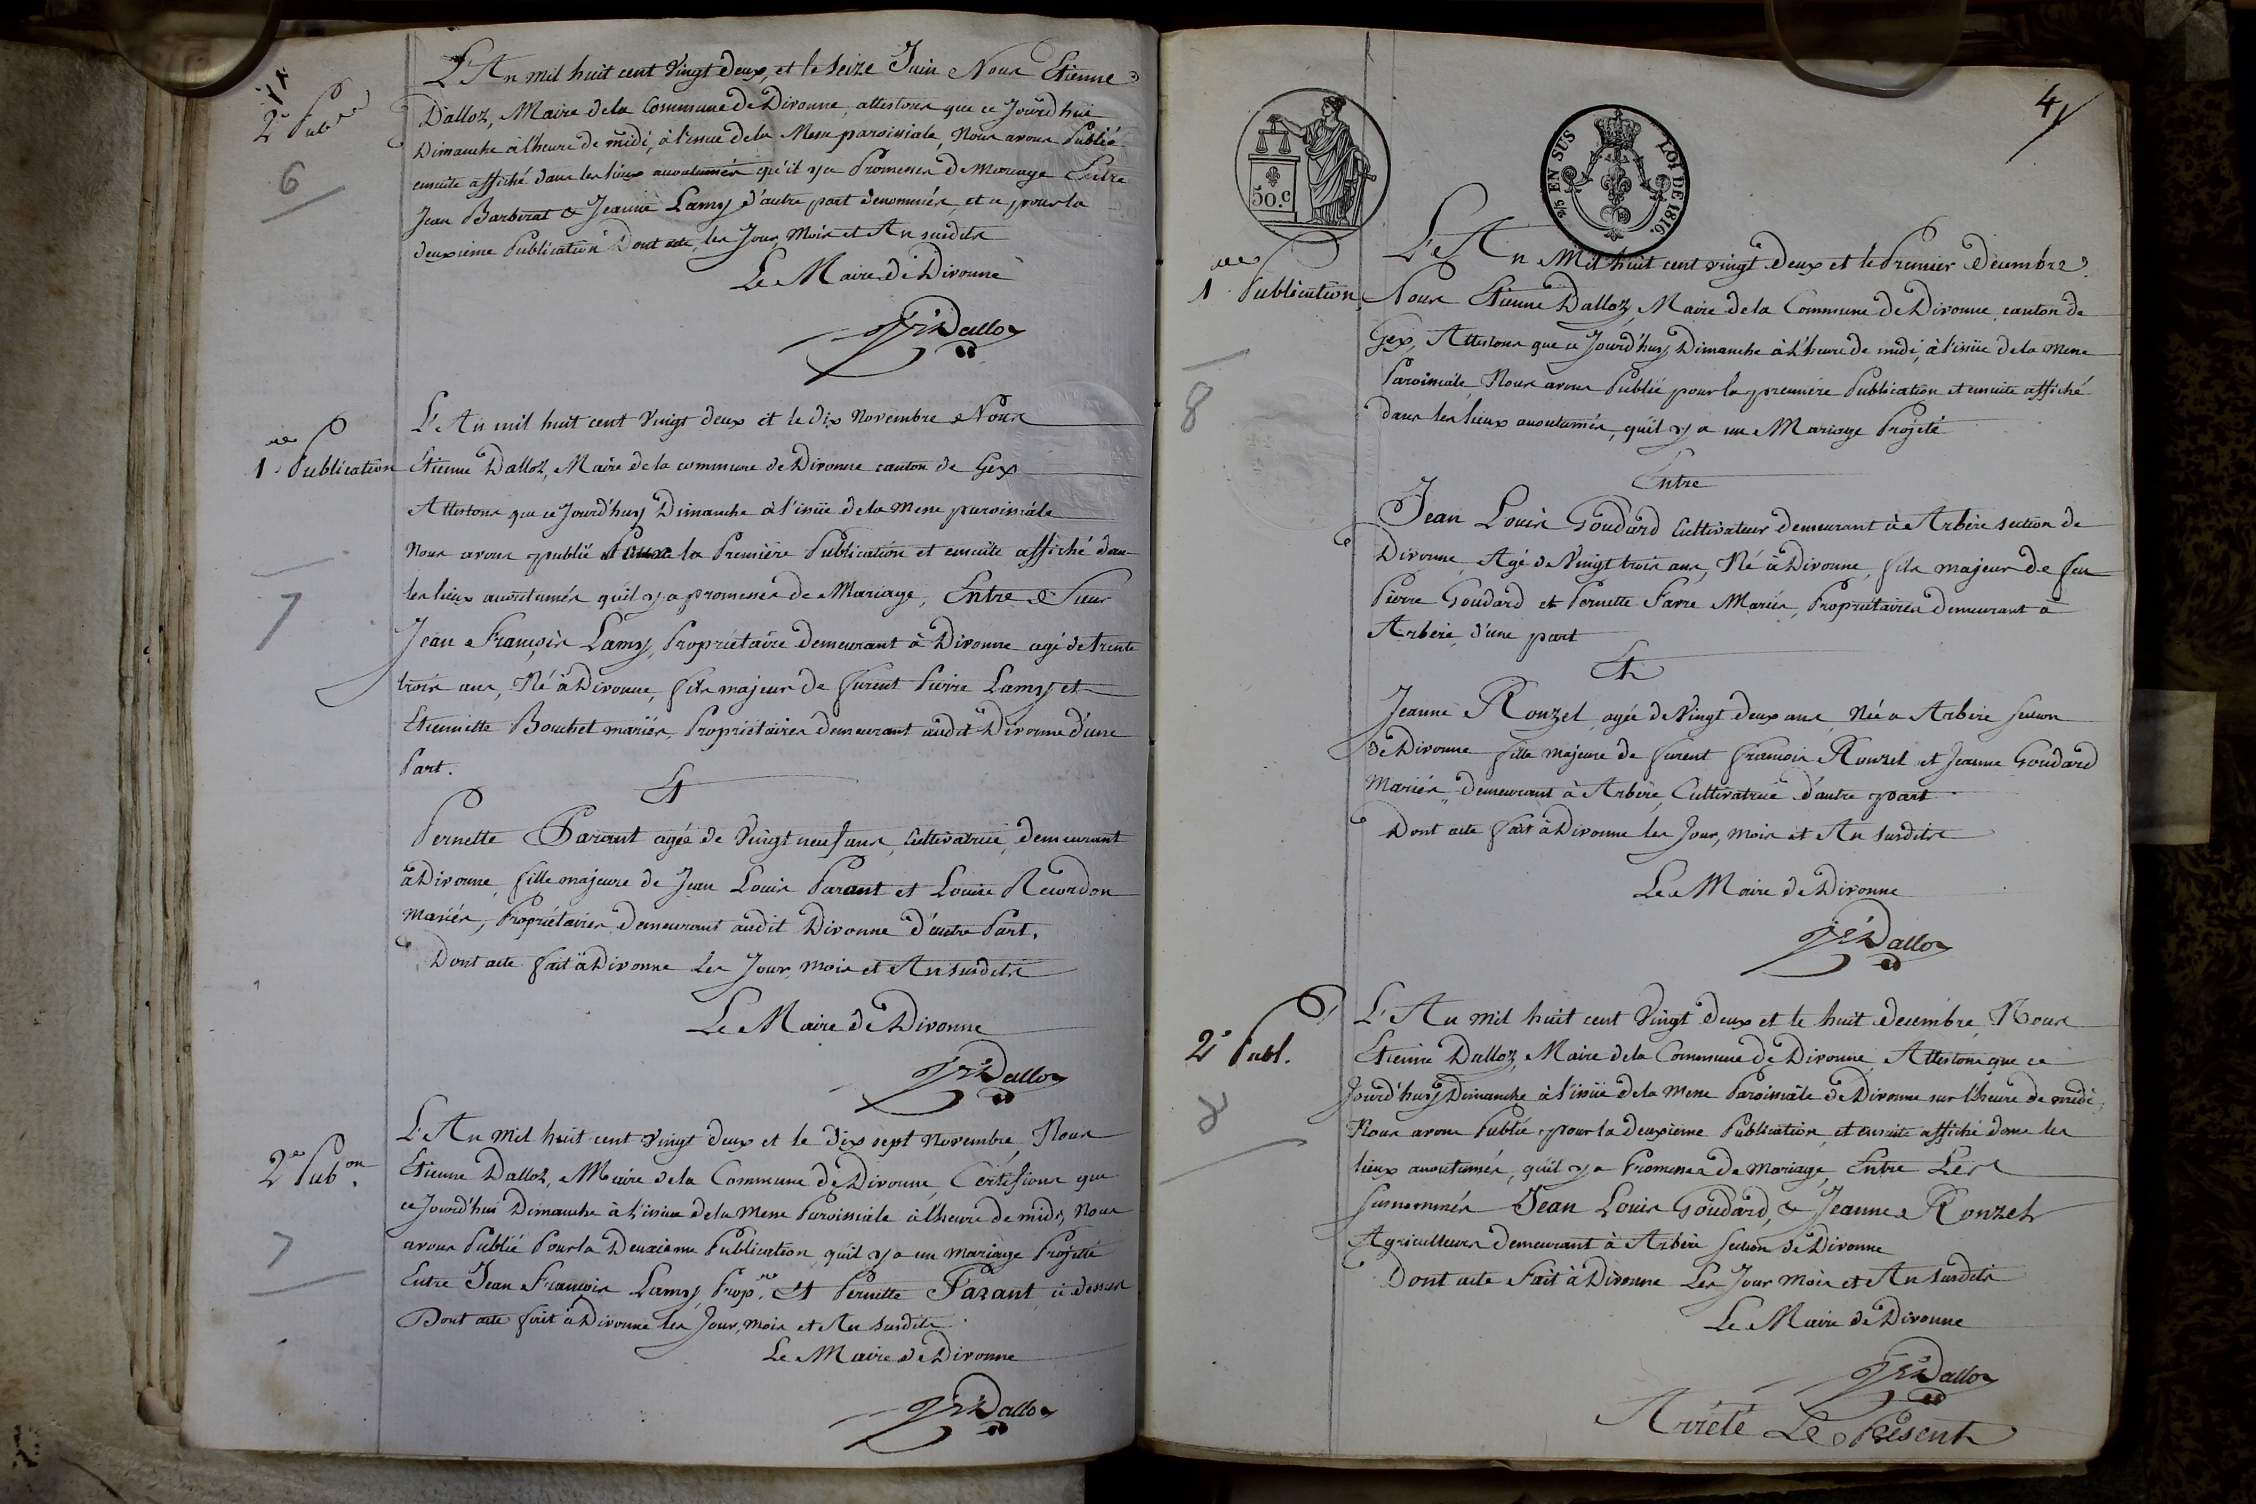 2e Pub.
6
L'An mil huit cent Vingt Deux, et le Seize Juin Nous Etienne
Dalloz, Maire de la Commune de Divonne, attestons que ce Jourd'hui
Dimanche à l'heure de midi, à l'issue de la Messe paroissiale, Nous avons Publié
ensuite affiché dans les lieux accoutumés qu'il y a Promesses de Mariage Entre
Jean Barberat & Jeanne Lamy d'autre part denommés, et a pour la
deuxieme Publication Dont acte, les Jour, Mois et An susdits
Le Maire de Divonne
Dalloz
1re Publication
7
L'An mil huit cent Vingt deux et le dix Novembre Nous
Etienne Dalloz, Maire de la commune de Divonne canton de Gex
Attestons que ce Jourd'huy Dimanche à l'issüe de la Messe paroissiale
Nous avons publié Pour la Première Publication et ensuite affiché dans
les lieux accoutumés qu'il y a promesses de Mariage, Entre Sieur
Jean François Lamy, Propriétaire demeurant à Divonne agé de trente
trois ans, Né à Divonne, fils majeur de furent Pierre Lamy et
Etiennette Bouchet mariés, Propriétaires demeurant audit Divonne d'une
Part.
Et
Pernette Parant agée de Vingt neuf ans, Cultivatrice, demeurant
à Divonne, fille majeure de Jean Louis Parant et Louise Recordon
Mariés, Propriétaires demeurant audit Divonne d'autre Part.
Dont acte fait à Divonne Les Jour, mois et An susdits
Le Maire de Divonne
Dalloz
2e Pub.on
7
L'An Mil huit cent Vingt deux et le Dix sept Novembre Nous
Etienne Dalloz, Maire de la Commune de Divonne, Certifions que
ce Jourd'hui Dimanche à l'issue de la Messe Paroissiale à l'heure de midi, Nous
avons Publié Pour la Deuxieme Publication, qu'il y a un mariage Projetté
Entre Jean François Lamy, Prop.re Et Pernette Parant, ci dessus
Dont acte fait à Divonne les Jour, mois et An susdits
Le Maire de Divonne
Dalloz
4
50.c
2/5 EN SUS
LOI DE 1816.
1re Publication
8
L'An Mil huit cent vingt Deux et le Premier Decembre
Nous Etienne Dalloz, Maire de la Commune de Divonne canton de
Gex, Attestons que ce Jourd'huy Dimanche à l'heure de midi, à l'issüe de la Messe
Paroissiale, Nous avons Publié pour la première Publication et ensuite affiché
dans les lieux accoutumés, qu'il y a un Mariage Projeté
Entre
Jean Louis Goudard Cultivateur demeurant à Arbère section de
Divonne, Agé de Vingt trois ans, Né à Divonne, fils majeur de feu
Pierre Goudard et Pernette Favre Mariés, Propriétaires demeurant à
Arbère, d'une part
Et
Jeanne Ronzel, agée de Vingt deux ans, Née a Arbère section
de Divonne fille majeure de furent François Ronzel et Jeanne Goudard
Mariés, demeurant à Arbère, Cultivatrice d'autre part
Dont acte fait à Divonne les Jour, mois et An susdits
Le Maire de Divonne
Dalloz
2e Publ.
8
L'An mil huit cent Vingt deux et le huit decembre, Nous
Etienne Dalloz, Maire de la Commune de Divonne, Attestons que ce
Jourd'huy Dimanche à l'issüe de la Messe Paroissiale de Divonne sur l'heure de midi,
Nous avons Publié pour la deuxieme Publication, et ensuite affiché dans les
lieux accoutumés, qu'il y a Promesses de Mariage, Entre Les
susnommés Jean Louis Goudard, & Jeanne Ronzel
Agriculteurs demeurant à Arbère section de Divonne
Dont acte Fait à Divonne Les Jour Mois et An susdits
Le Maire de Divonne
Dalloz
Arrêté Le Présent